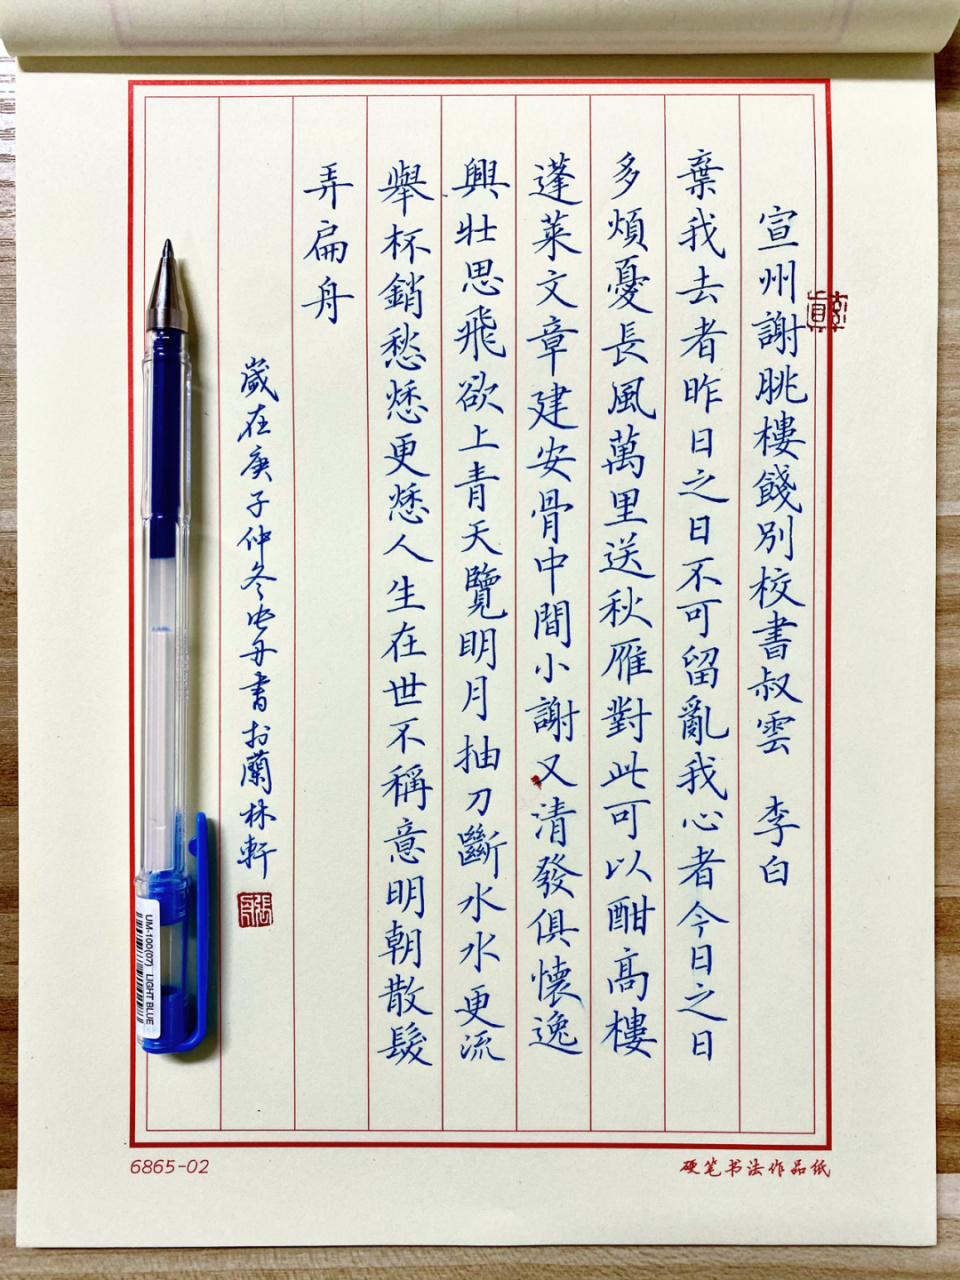 宣州謝朓樓餞別校書叔雲 李白
棄我去者昨日之日不可留亂我心者今日之日
多煩憂長風萬里送秋雁對此可以酣高樓
蓬萊文章建安骨中間小謝又清發俱懷逸
興壯思飛欲上青天覽明月抽刀斷水水更流
舉杯銷愁愁更愁人生在世不稱意明朝散髮
弄扁舟
歲在庚子仲冬書於蘭林軒
UM-100(07) LIGHT BLUE
6865-02
硬笔书法作品纸